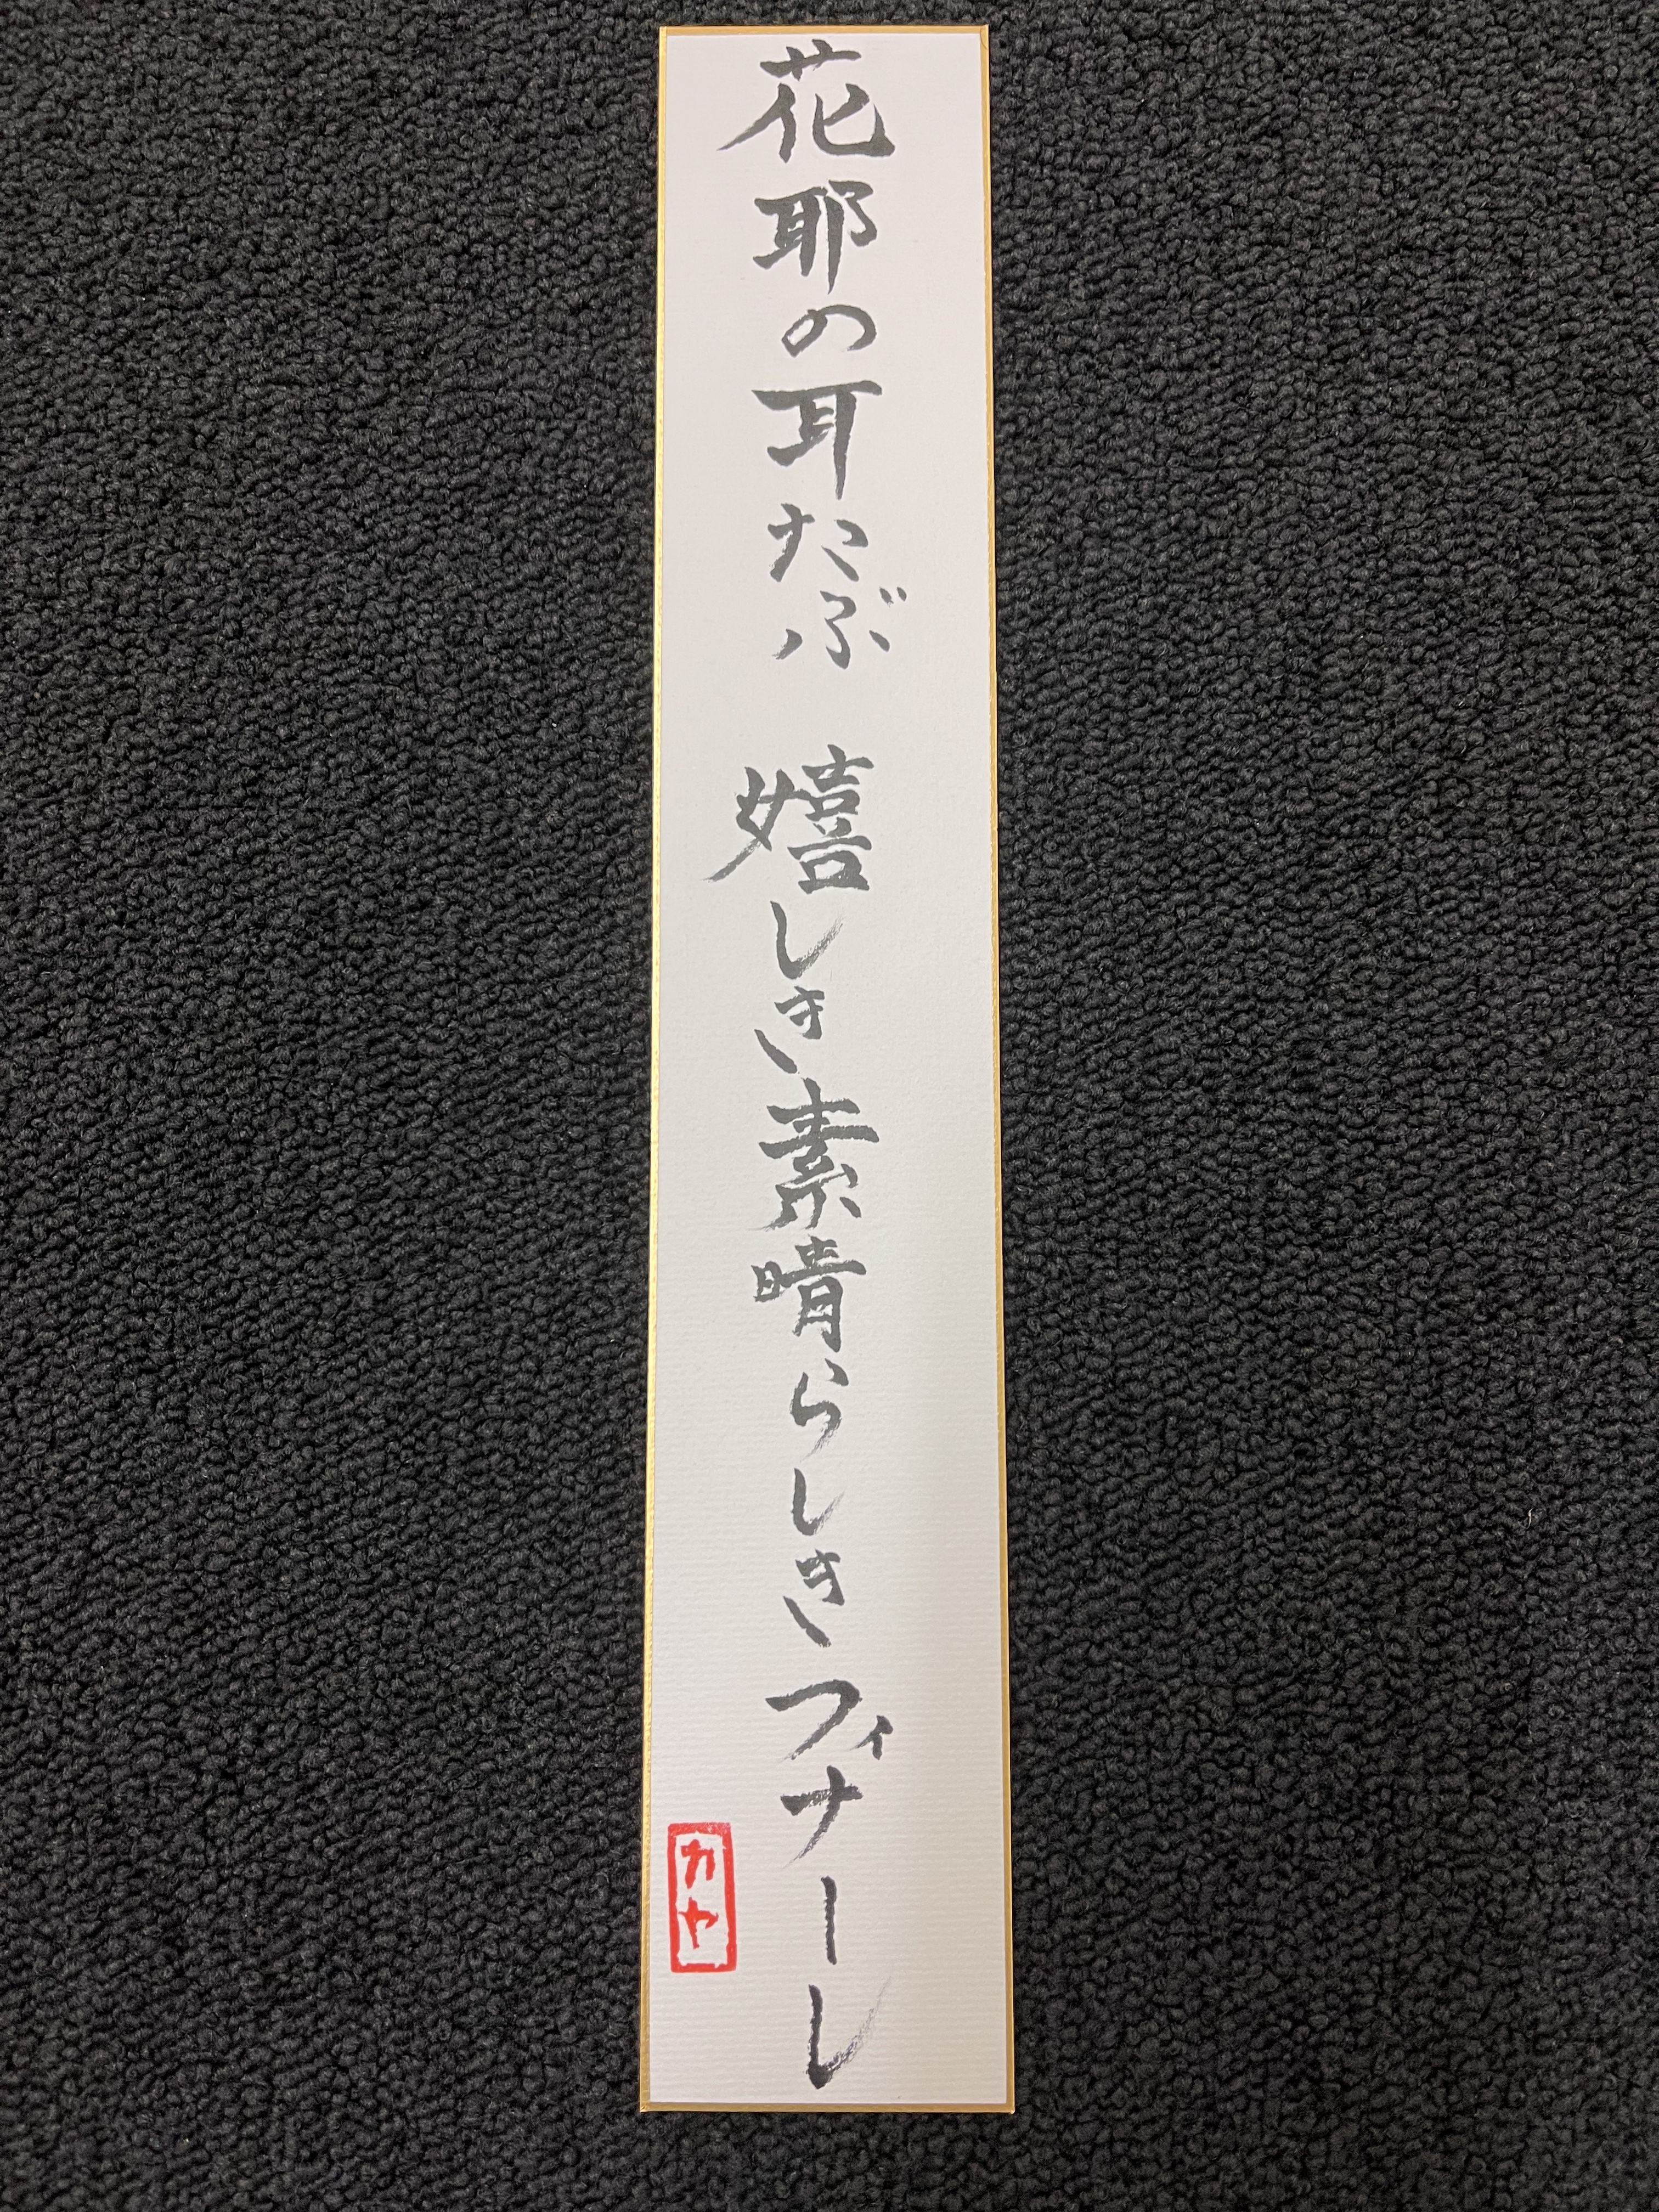 花耶の耳たぶ　嬉しき素晴らしきフィナーレ
カヤ